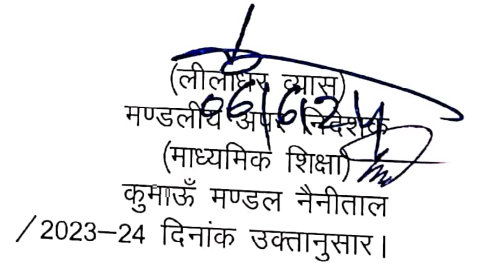 (लीलाधर व्यास)
06/6/24
मण्डलीय अपर निदेशक
(माध्यमिक शिक्षा)
कुमाऊँ मण्डल नैनीताल
/2023–24 दिनांक उक्तानुसार।